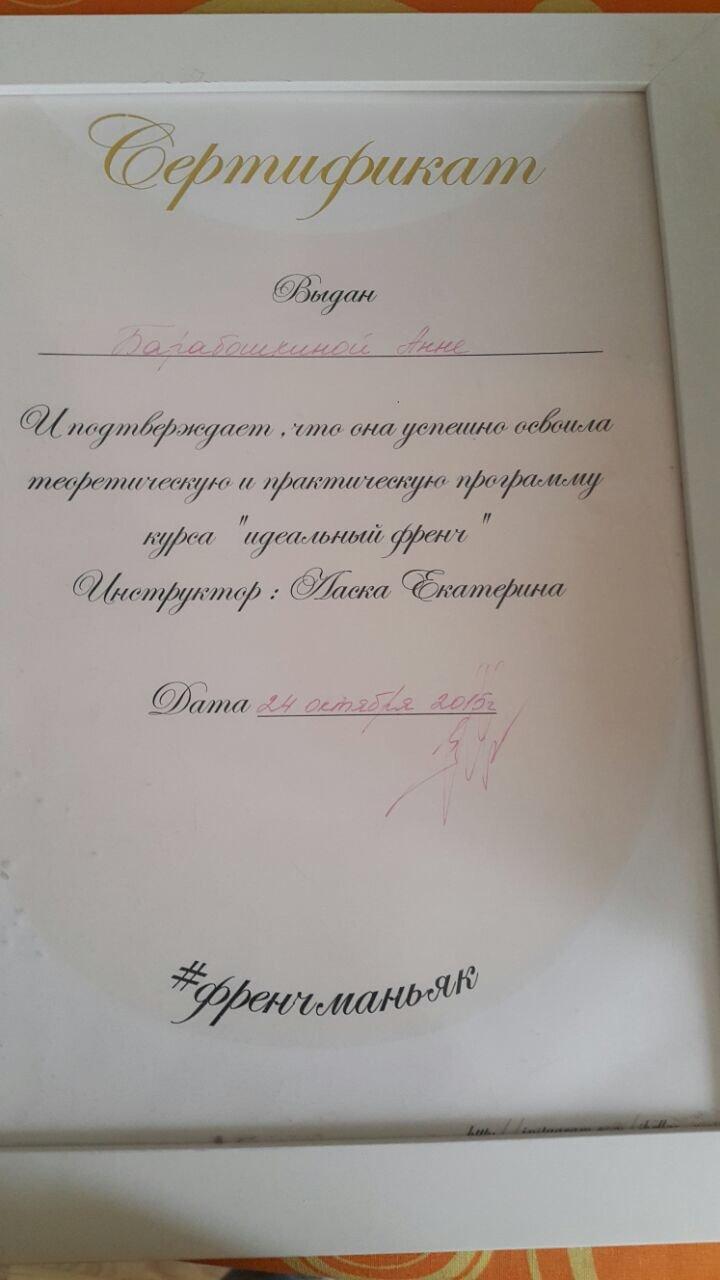 Сертификат
Выдан
Барабошкиной Анне
И подтверждает , что она успешно освоила
теоретическую и практическую программу
курса "идеальный френч "
Инструктор : Ласка Екатерина
Дата 24 октября 2015г
#френчманьяк